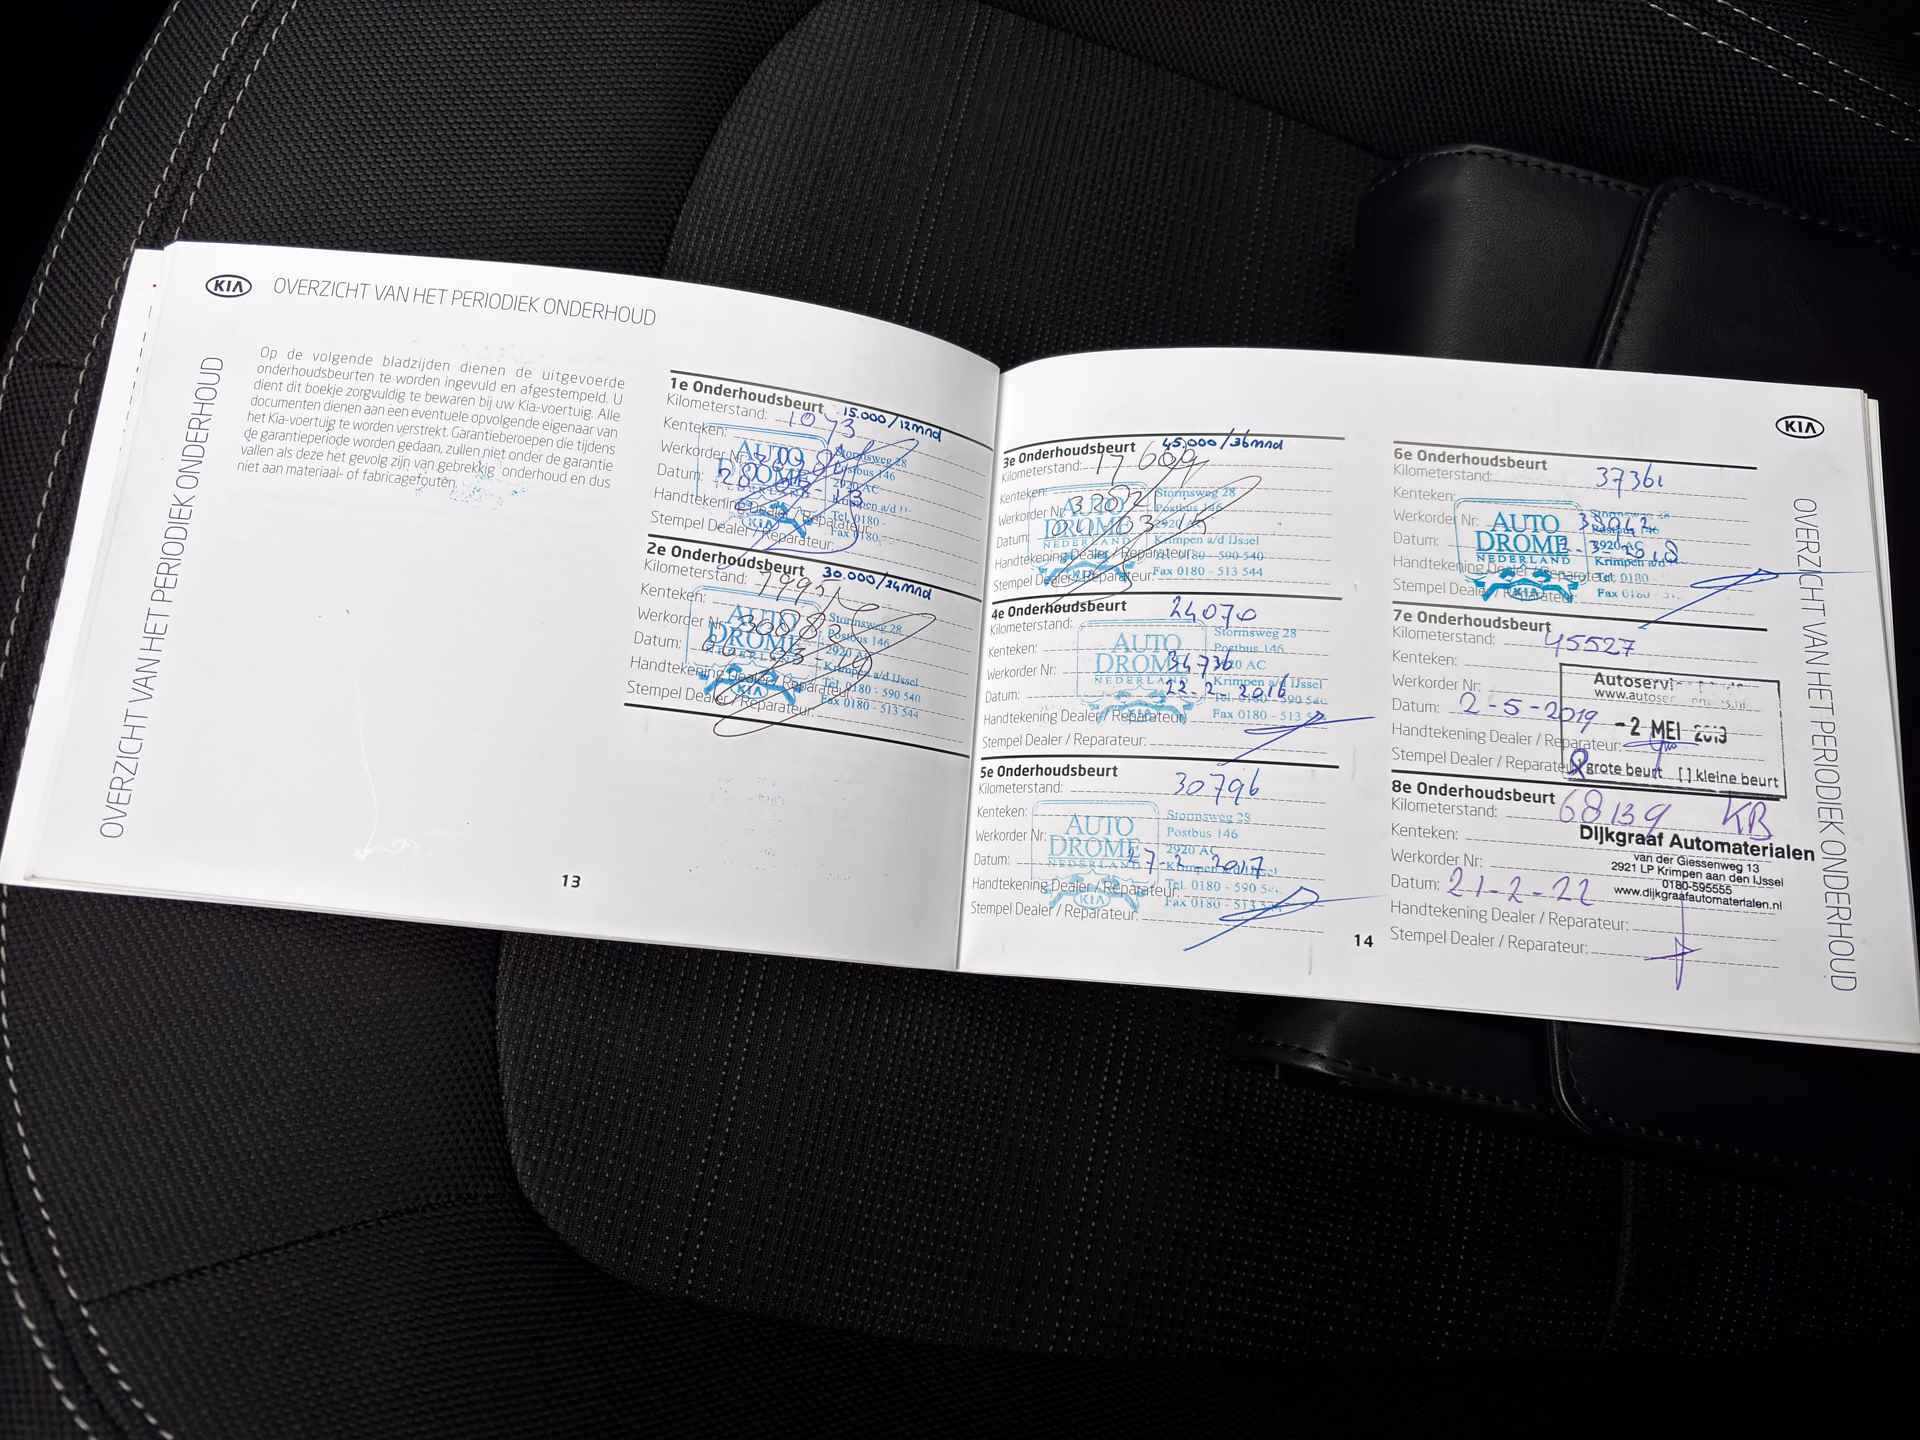 KIA
OVERZICHT VAN HET PERIODIEK ONDERHOUD
OVERZICHT VAN HET PERIODIEK ONDERHOUD
Op de volgende bladzijden dienen de uitgevoerde
onderhoudsbeurten te worden ingevuld en afgestempeld. U
dient dit boekje zorgvuldig te bewaren bij uw Kia-voertuig. Alle
documenten dienen aan een eventuele opvolgende eigenaar van
het Kia-voertuig te worden verstrekt. Garantieberoepen die tijdens
de garantieperiode worden gedaan, zullen niet onder de garantie
vallen als deze het gevolg zijn van gebrekkig onderhoud en dus
niet aan materiaal- of fabricagefouten.
1e Onderhoudsbeurt 15.000/12mnd
Kilometerstand: 1073
Kenteken:
Werkorder Nr:
Datum:
Handtekening Dealer / Reparateur:
Stempel Dealer / Reparateur:
AUTO
DROME
NEDERLAND
KIA
Stormsweg 28
Postbus 146
2920 AC
Krimpen a/d IJ
Tel. 0180 -
Fax 0180 -
2e Onderhoudsbeurt 30.000/24mnd
Kilometerstand: 7995
Kenteken:
Werkorder Nr:
Datum:
Handtekening Dealer / Reparateur:
Stempel Dealer / Reparateur:
AUTO
DROME
NEDERLAND
KIA
Stormsweg 28
Postbus 146
2920 AC
Krimpen a/d IJssel
Tel. 0180 - 590 540
Fax 0180 - 513 544
13
3e Onderhoudsbeurt 45.000/36mnd
Kilometerstand: 17609
Kenteken:
Werkorder Nr:
Datum:
Handtekening Dealer / Reparateur:
Stempel Dealer / Reparateur:
AUTO
DROME
NEDERLAND
KIA
Stormsweg 28
Postbus 146
2920 AC
Krimpen a/d IJssel
Tel. 0180 - 590 540
Fax 0180 - 513 544
4e Onderhoudsbeurt
Kilometerstand: 24070
Kenteken:
Werkorder Nr: 34736
Datum: 22-2-2016
Handtekening Dealer / Reparateur:
Stempel Dealer / Reparateur:
AUTO
DROME
NEDERLAND
KIA
Stormsweg 28
Postbus 146
2920 AC
Krimpen a/d IJssel
Tel. 0180 - 590 540
Fax 0180 - 513 5
5e Onderhoudsbeurt
Kilometerstand: 30796
Kenteken:
Werkorder Nr:
Datum: 27-2-2017
Handtekening Dealer / Reparateur:
Stempel Dealer / Reparateur:
AUTO
DROME
NEDERLAND
KIA
Stormsweg 28
Postbus 146
2920 AC
Krimpen a/d IJssel
Tel. 0180 - 590 5
Fax 0180 - 513 5
14
KIA
OVERZICHT VAN HET PERIODIEK ONDERHOUD
6e Onderhoudsbeurt
Kilometerstand: 37361
Kenteken:
Werkorder Nr: 38042
Datum:
Handtekening Dealer / Reparateur:
Stempel Dealer / Reparateur:
AUTO
DROME
NEDERLAND
KIA
Stormsweg 28
Postbus 146
2920 AC
Krimpen a/d
Tel. 0180
Fax 0180 - 51
7e Onderhoudsbeurt
Kilometerstand: 45527
Kenteken:
Werkorder Nr:
Datum: 2-5-2019
Handtekening Dealer / Reparateur:
Stempel Dealer / Reparateur:
-2 MEI
grote beurt [ ] kleine beurt
8e Onderhoudsbeurt
Kilometerstand: 68139 KB
Kenteken:
Werkorder Nr:
Datum: 21-2-22
Handtekening Dealer / Reparateur:
Stempel Dealer / Reparateur:
Dijkgraaf Automaterialen
van der Giessenweg 13
2921 LP Krimpen aan den IJssel
0180-595555
www.dijkgraafautomaterialen.nl